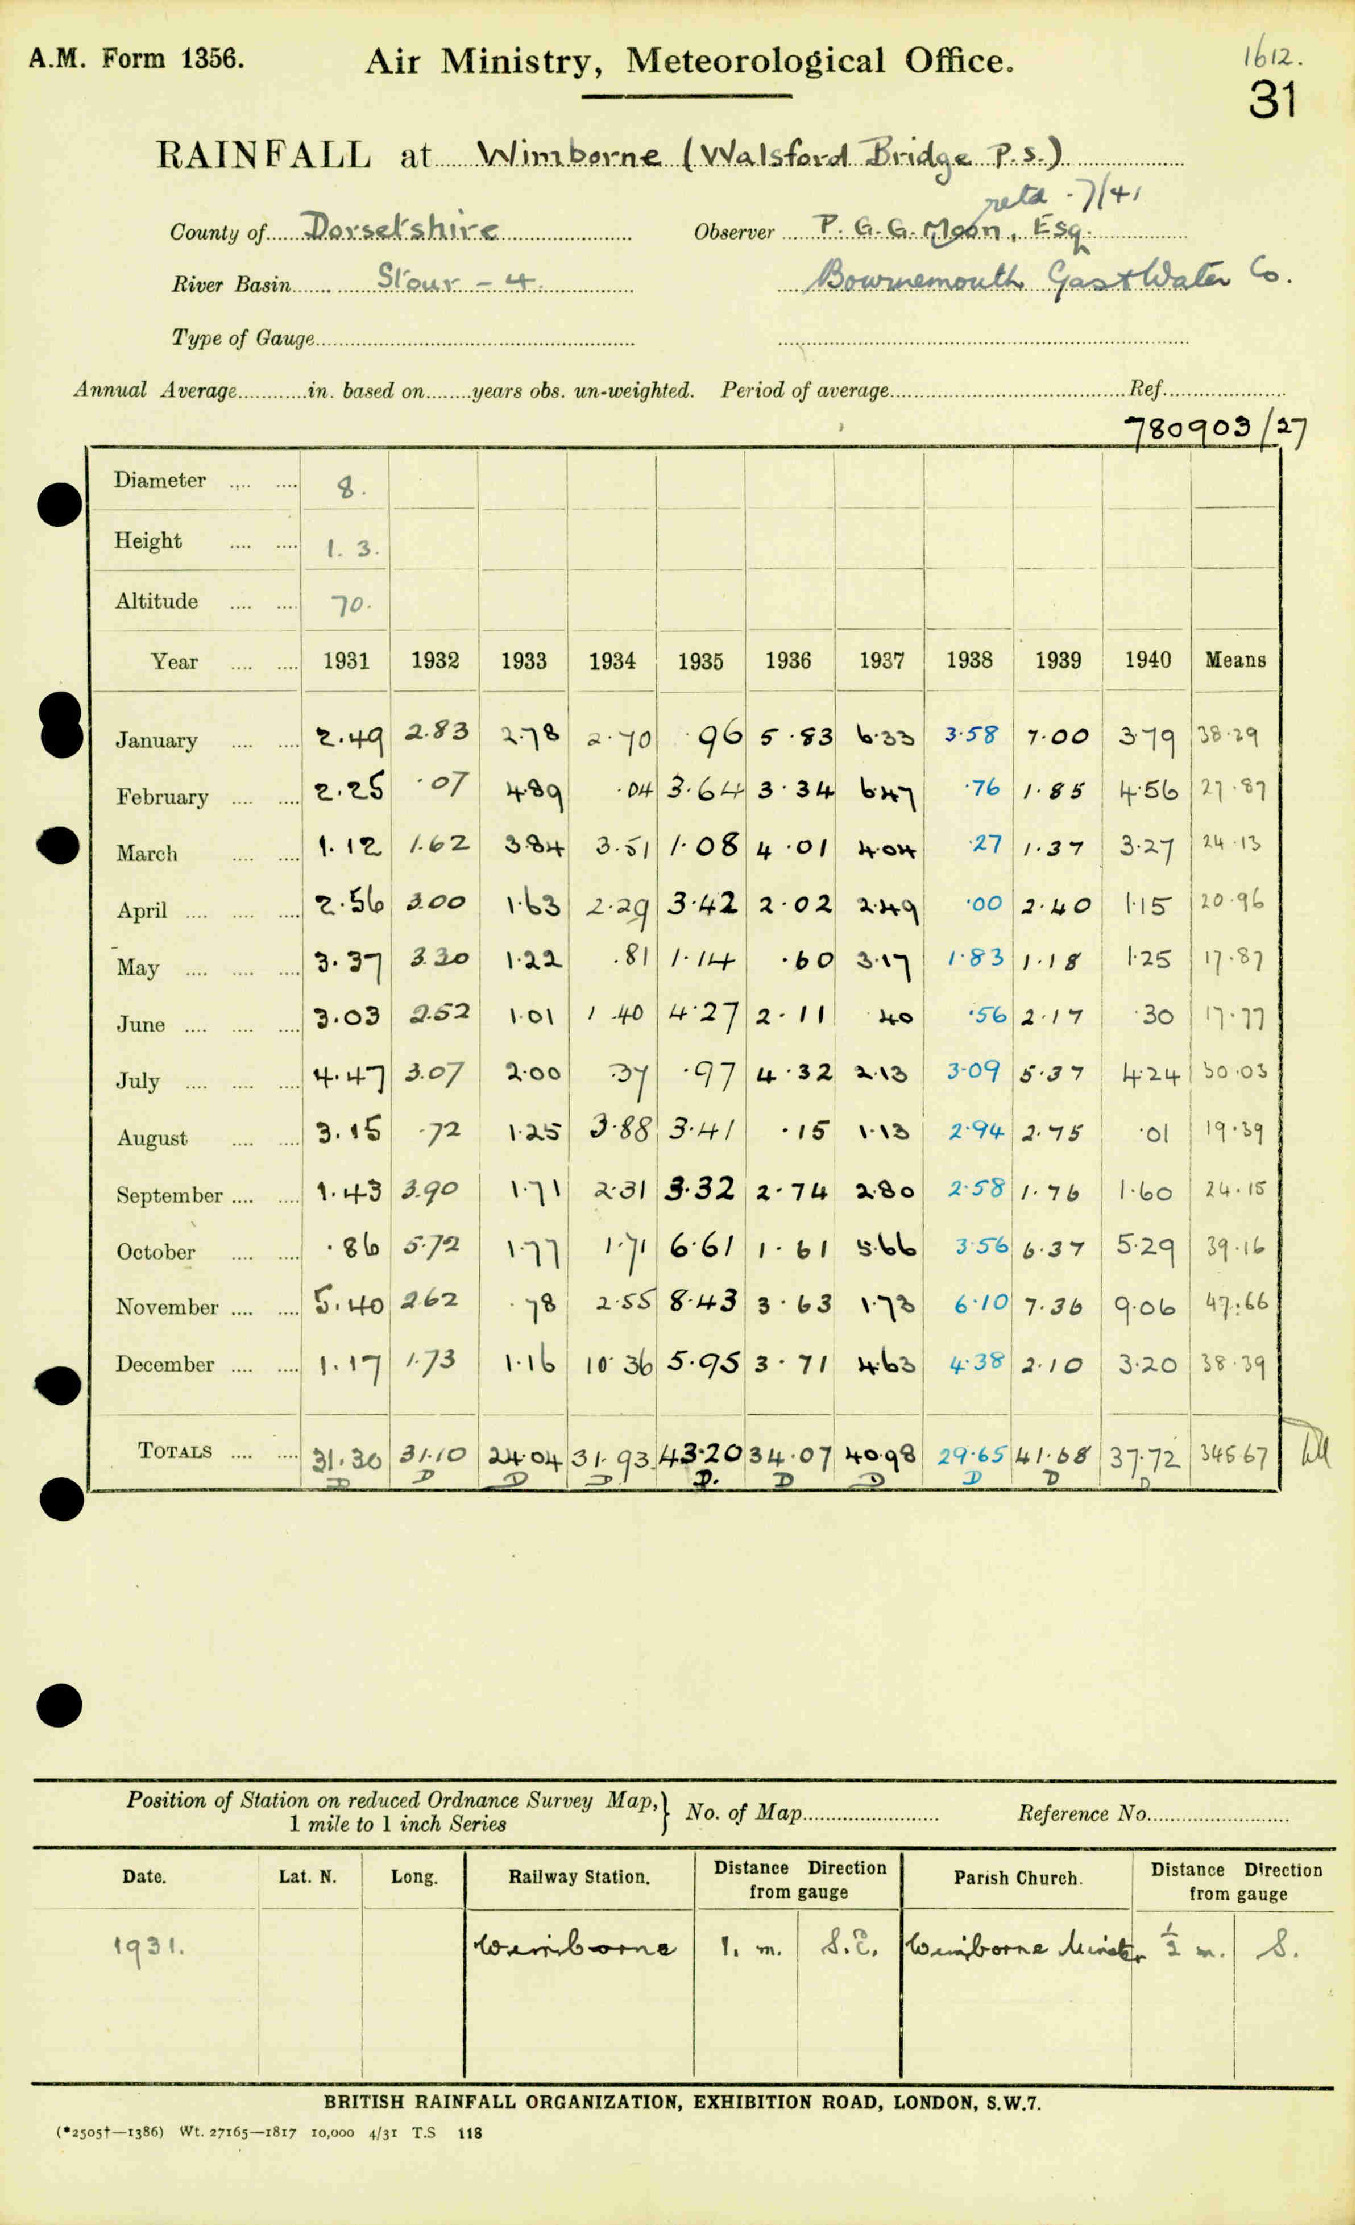 A.M. Form 1356. Air Ministry, Meteorological Office. 1612.
31
RAINFALL at Wimborne (Walsford Bridge P.S.)
retd. 7/41
County of Dorsetshire Observer P. G. G. Moon, Esq.
River Basin Stour - 4. Bournemouth Gas & Water Co.
Type of Gauge
Annual Average in. based on years obs. un-weighted. Period of average Ref.
780903/27
Diameter 8.
Height 1. 3.
Altitude 70.
Year 1931 1932 1933 1934 1935 1936 1937 1938 1939 1940 Means
January 2.49 2.83 2.78 2.70 .96 5.83 6.33 3.58 7.00 3.79 38.29
February 2.25 .07 4.89 .04 3.64 3.34 6.47 .76 1.85 4.56 27.87
March 1.12 1.62 3.84 3.51 1.08 4.01 4.04 .27 1.37 3.27 24.13
April 2.56 3.00 1.63 2.29 3.42 2.02 2.49 .00 2.40 1.15 20.96
May 3.37 3.30 1.22 .81 1.14 .60 3.17 1.83 1.18 1.25 17.87
June 3.03 2.52 1.01 1.40 4.27 2.11 .40 .56 2.17 .30 17.77
July 4.47 3.07 2.00 .37 .97 4.32 2.13 3.09 5.37 4.24 30.03
August 3.15 .72 1.25 3.88 3.41 .15 1.13 2.94 2.75 .01 19.39
September 1.43 3.90 1.71 2.31 3.32 2.74 2.80 2.58 1.76 1.60 24.15
October .86 5.72 1.77 1.71 6.61 1.61 5.66 3.56 6.37 5.29 39.16
November 5.40 2.62 .78 2.55 8.43 3.63 1.73 6.10 7.36 9.06 47.66
December 1.17 1.73 1.16 10.36 5.95 3.71 4.63 4.38 2.10 3.20 38.39
TOTALS 31.30 31.10 24.04 31.93 43.20 34.07 40.98 29.65 41.68 37.72 345.67
D D D D D. D D D D D
Position of Station on reduced Ordnance Survey Map,} No. of Map Reference No.
1 mile to 1 inch Series
Date. Lat. N. Long. Railway Station. Distance Direction from gauge Parish Church. Distance Direction from gauge
1931. Wimborne 1. m. S.E. Wimborne Minster ½ m. S.
BRITISH RAINFALL ORGANIZATION, EXHIBITION ROAD, LONDON, S.W.7.
(*2505†—1386) Wt. 27165—1817 10,000 4/31 T.S 118